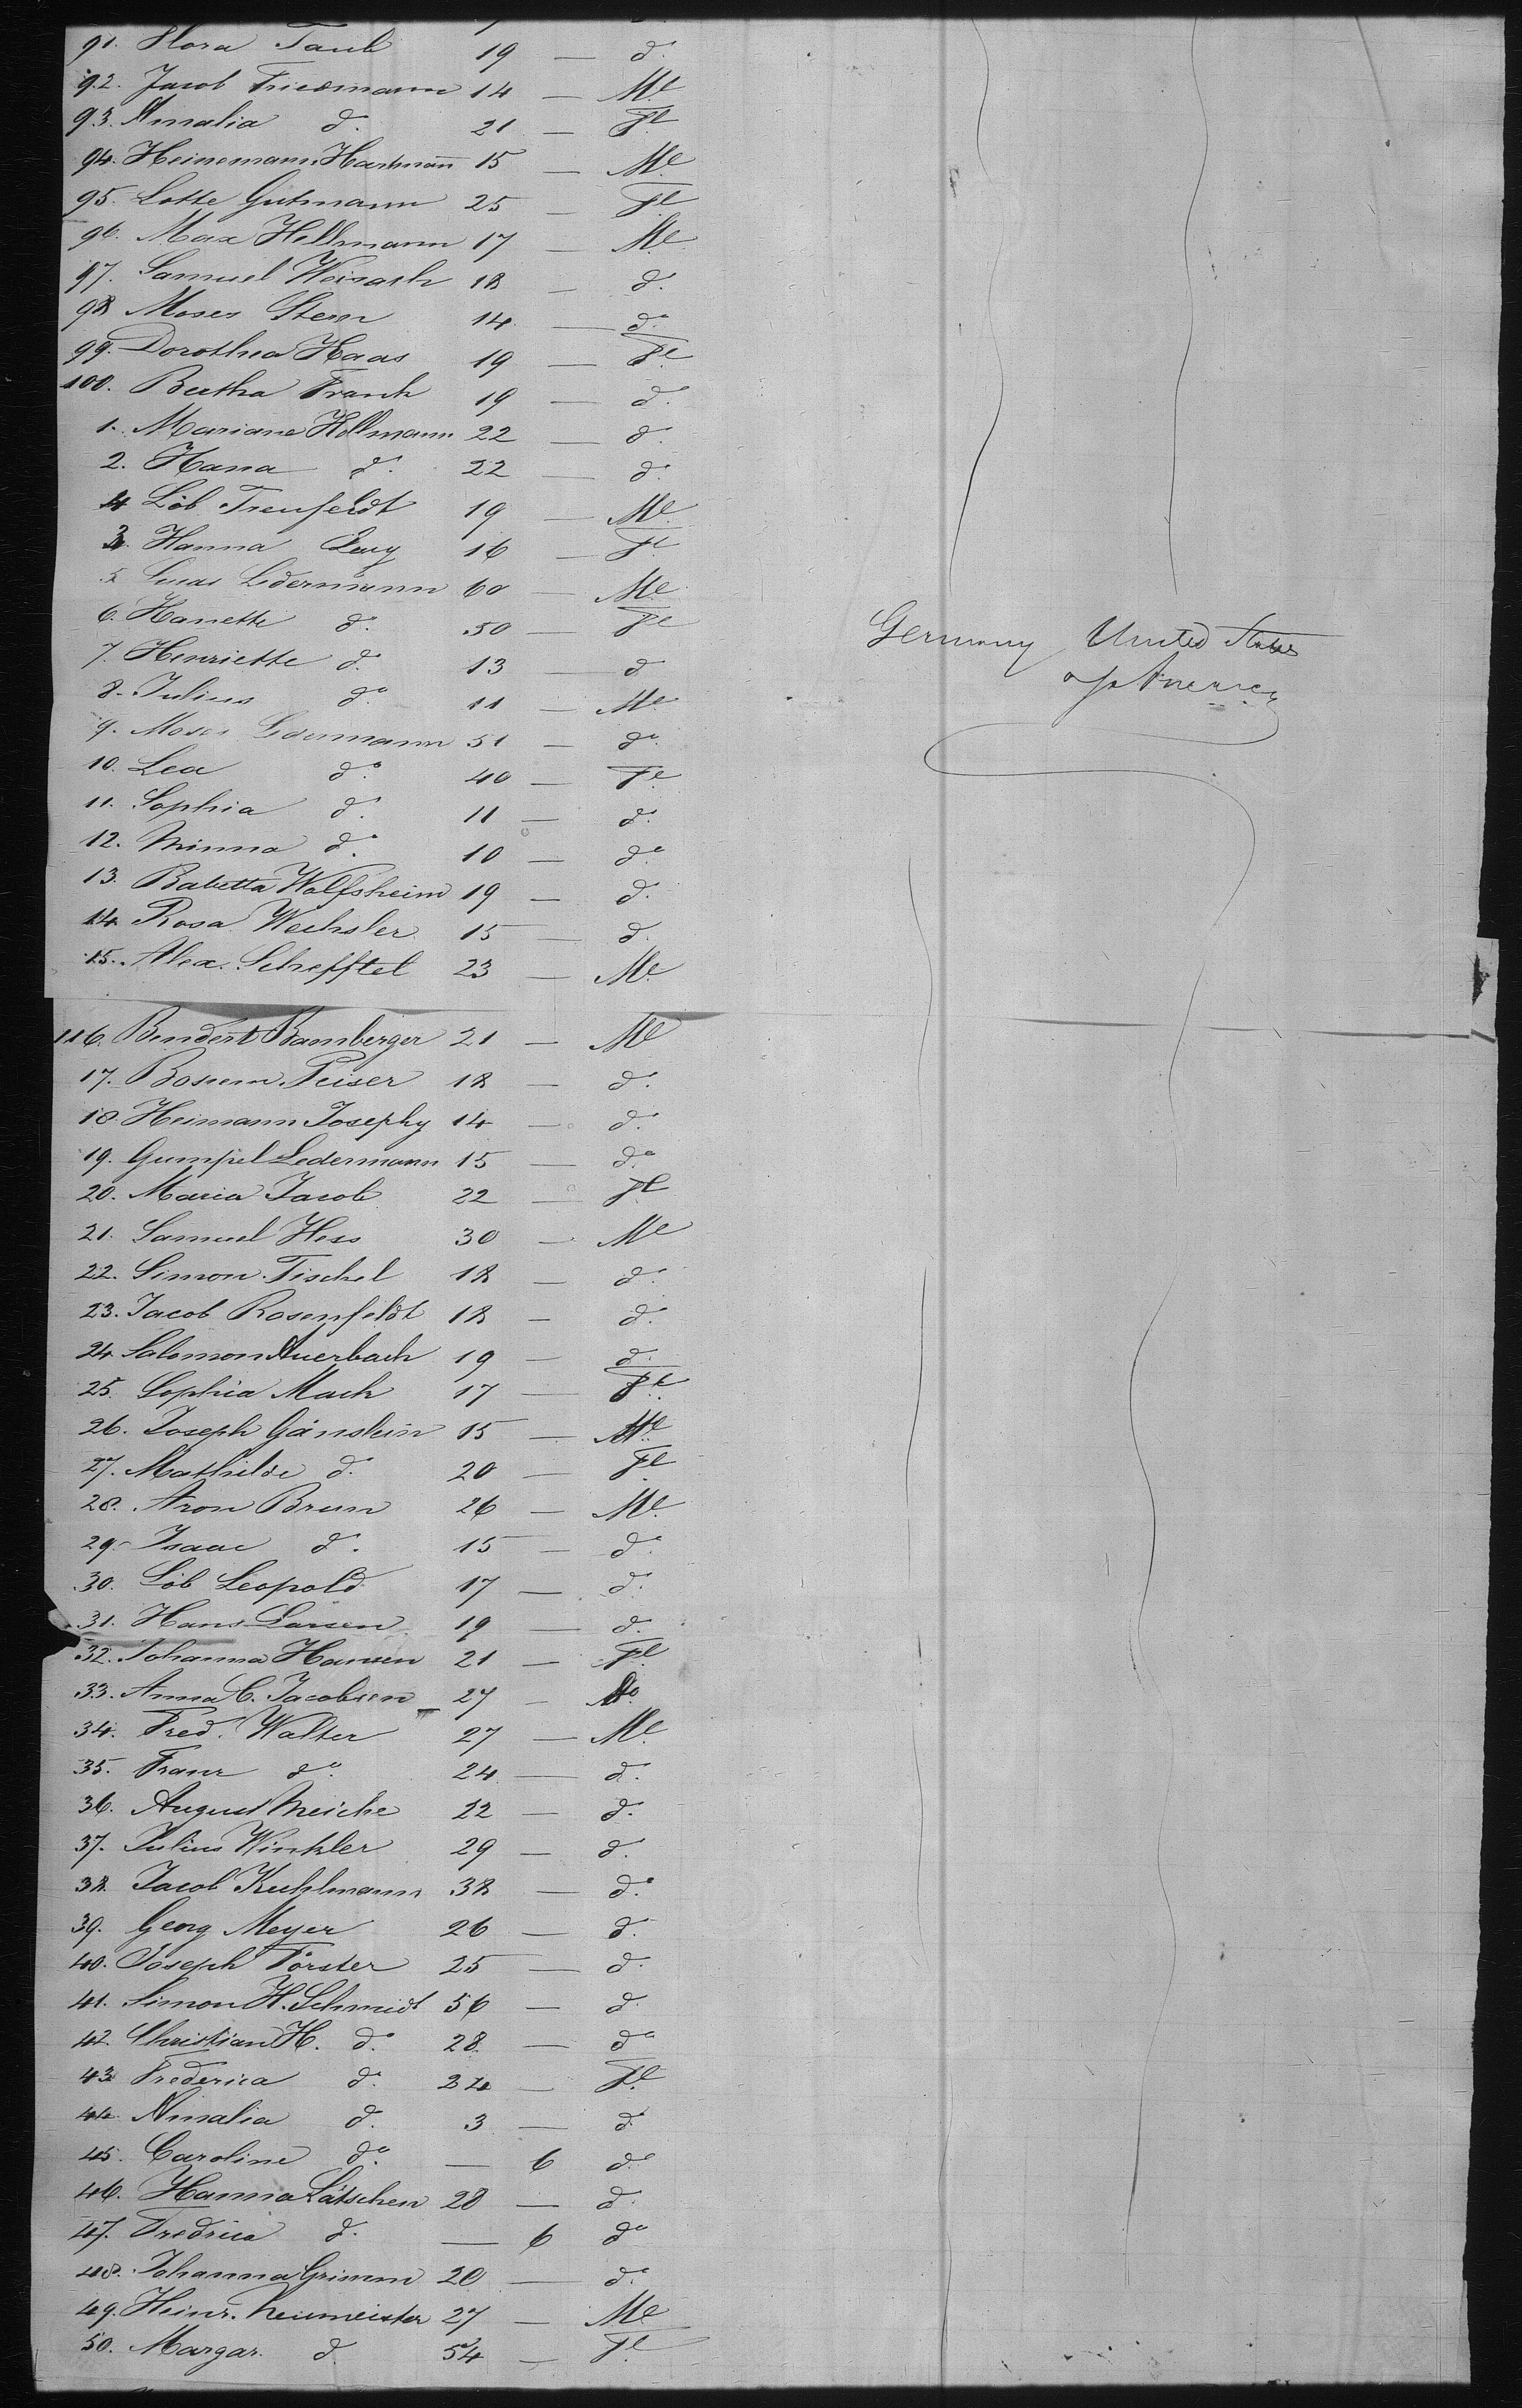 91. Flora Taub 19 — do.
92. Jacob Friedmann 14 — Me.
93. Amalia do. 21 — Fe.
94. Heinemann Hartmann 15 — Me.
95. Lotte Gutmann 25 — Fe.
96. Max Hellmann 17 — Me.
97. Samuel 18 — do.
98 Moses Stern 14 — do.
99. Dorothea Haas 19 — Fe.
100. Bertha Frank 19 — do.
1. Mariane Hellmann 22 — do.
2. Hana do. 22 — do.
4 Löb Treufeldt 19 — Me.
3. Hanna Levy 16 — Fe.
5 Lucas Ledermann 60 — Me.
6. Hanette do. 50 — Fe
Germany United States
7. Henriette do. 13 — do
of America
8. Julius do. 11 — Me.
9. Moses Ledermann 51 — do.
10. Lea do. 40 — Fe.
11. Sophia do. 11 — do.
12. Minna do. 10 — do.
13. Babetta Wolfsheim 19 — do.
14. Rosa Wechsler 15 — do.
15. Alex. Schefftel 23 — Me.
116. Bendert Bamberger 21 — Me
17. Peiser 18 — do.
18. Heimann Josephy 14 — do.
19. Gumpel Ledermann 15 — do.
20. Maria Jacob 22 — Fe
21. Samuel Hess 30 — Me
22. Simon Tischel 18 — do.
23. Jacob Rosenfeldt 18 — do.
24 Salomon Auerbach 19 — do.
25. Sophia Mack 17 — Fe.
26. Joseph Gänslein 15 — Me.
27. Mathilde do. 20 — Fe.
28. Aron Brun 26 — Me.
29. Isaac do. 15 — do.
30. Löb Leopold 17 — do.
31. Hans Larsen 19 — do.
32. Johanna Hansen 21 — Fe.
33. Anna C. Jacobsen 27 — do.
34. Fred. Walter 27 — Me.
35. Franz do. 24 — do.
36. August Meiche 22 — do.
37. Julius Winkler 29 — do.
38. Jacob Kuhlmann 38 — do.
39. Georg Meyer 26 — do.
40. Joseph Förster 25 — do.
41. Simon H. Schmidt 56 — do.
42. Christian H. do. 28 — do
43 Frederica do. 24 — Fe.
44. Amalia do. 3 — do.
45. Caroline do. — 6 do.
46. Hanna Lätschen 28 — do.
47. Fredrica do. — 6 do
48. Johanna Grimm 20 — do.
49. Heinr. Neumeister 27 — Me
50. Margar. do. 54 — Fe.